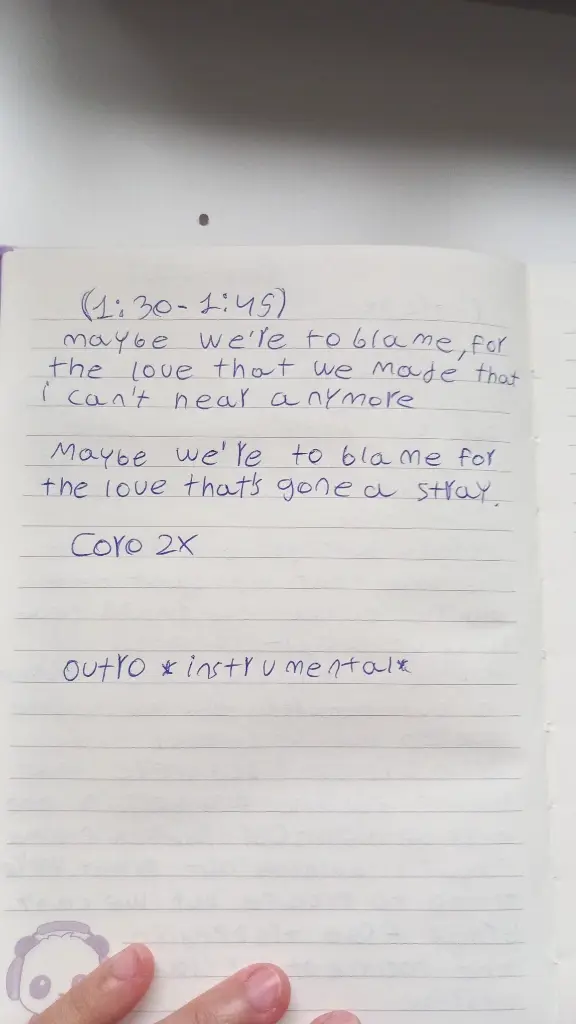 (1:30-1:45)
maybe we're to blame, for
the love that we made that
i can't hear anymore
Maybe we're to blame for
the love that's gone a stray.
Coro 2X
outro *instrumental*